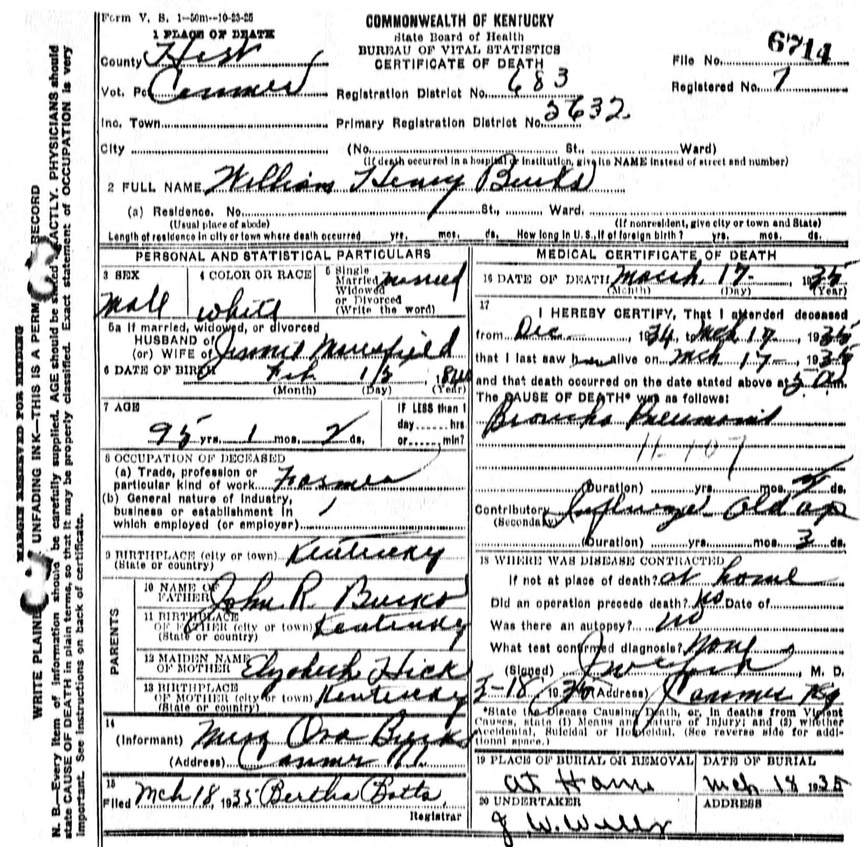 Form V. S. 1—50m—10-23-25
COMMONWEALTH OF KENTUCKY
State Board of Health
BUREAU OF VITAL STATISTICS
CERTIFICATE OF DEATH
1 PLACE OF DEATH
County Hart
Vot. Pc Canmer
Inc. Town
City (No. St., Ward)
File No. 6714
Registration District No. 683
Registered No. 7
Primary Registration District No. 5632
(If death occurred in a hospital or institution, give its NAME instead of street and number)
2 FULL NAME William Henry Burks
(a) Residence. No. St., Ward.
(Usual place of abode) (If nonresident, give city or town and State)
Length of residence in city or town where death occurred yrs. mos. ds. How long in U.S., if of foreign birth? yrs. mos. ds.
PERSONAL AND STATISTICAL PARTICULARS
3 SEX
Male
4 COLOR OR RACE
white
5 Single
Married
Widowed
or Divorced
(Write the word)
married
5a If married, widowed, or divorced
HUSBAND of
(or) WIFE of
6 DATE OF BIRTH Feb 15 1840
(Month) (Day) (Year)
7 AGE
95 yrs. 1 mos. 2 ds.
IF LESS than 1
day hrs
or min?
8 OCCUPATION OF DECEASED
(a) Trade, profession or
particular kind of work Farmer
(b) General nature of Industry,
business or establishment in
which employed (or employer)
9 BIRTHPLACE (city or town) Kentucky
(State or country)
PARENTS
10 NAME OF
FATHER John R. Burks
11 BIRTHPLACE
OF FATHER (city or town) Kentucky
(State or country)
12 MAIDEN NAME
OF MOTHER Elizabeth Hick
13 BIRTHPLACE
OF MOTHER (city or town) Kentucky
(State or country)
14
(Informant) Ora Burks
(Address) Canmer
15
Filed Mch 18, 1935 Bertha Botts,
Registrar
MEDICAL CERTIFICATE OF DEATH
16 DATE OF DEATH March 17 1935
(Month) (Day) (Year)
17
I HEREBY CERTIFY, That I attended deceased
from Dec , 1934, Mch 17, 1935
that I last saw alive on Mch 17, 1935
and that death occurred on the date stated above at
The CAUSE OF DEATH* was as follows:
Broncho Pneumonia
11-107
(Duration) yrs. mos. ds.
Contributory Influenza Old age
(Secondary)
(Duration) yrs. mos. 3 ds.
18 WHERE WAS DISEASE CONTRACTED
If not at place of death? at home
Did an operation precede death? no Date of
Was there an autopsy? no
What test confirmed diagnosis? none
(Signed) M. D.
3-18, 1935 (Address) Canmer Ky
*State the Disease Causing Death, or, in deaths from Violent
Causes, state (1) Means and Nature of Injury; and (2) whether
Accidental, Suicidal or Homicidal. (See reverse side for addi-
tional space.)
19 PLACE OF BURIAL OR REMOVAL
at Home
DATE OF BURIAL
Mch 18 1935
20 UNDERTAKER
J W. Wells
ADDRESS
MARGIN RESERVED FOR BINDING
WRITE PLAINLY UNFADING INK—THIS IS A PERM RECORD
N. B.—Every item of information should be carefully supplied. AGE should be stated EXACTLY. PHYSICIANS should
state CAUSE OF DEATH in plain terms, so that it may be properly classified. Exact statement of OCCUPATION is very
important. See instructions on back of certificate.